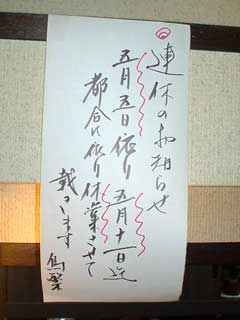 連休のお知らせ
五月五日依り
五月十一日迄
都合に依り休業させて
戴きます
鳥繁